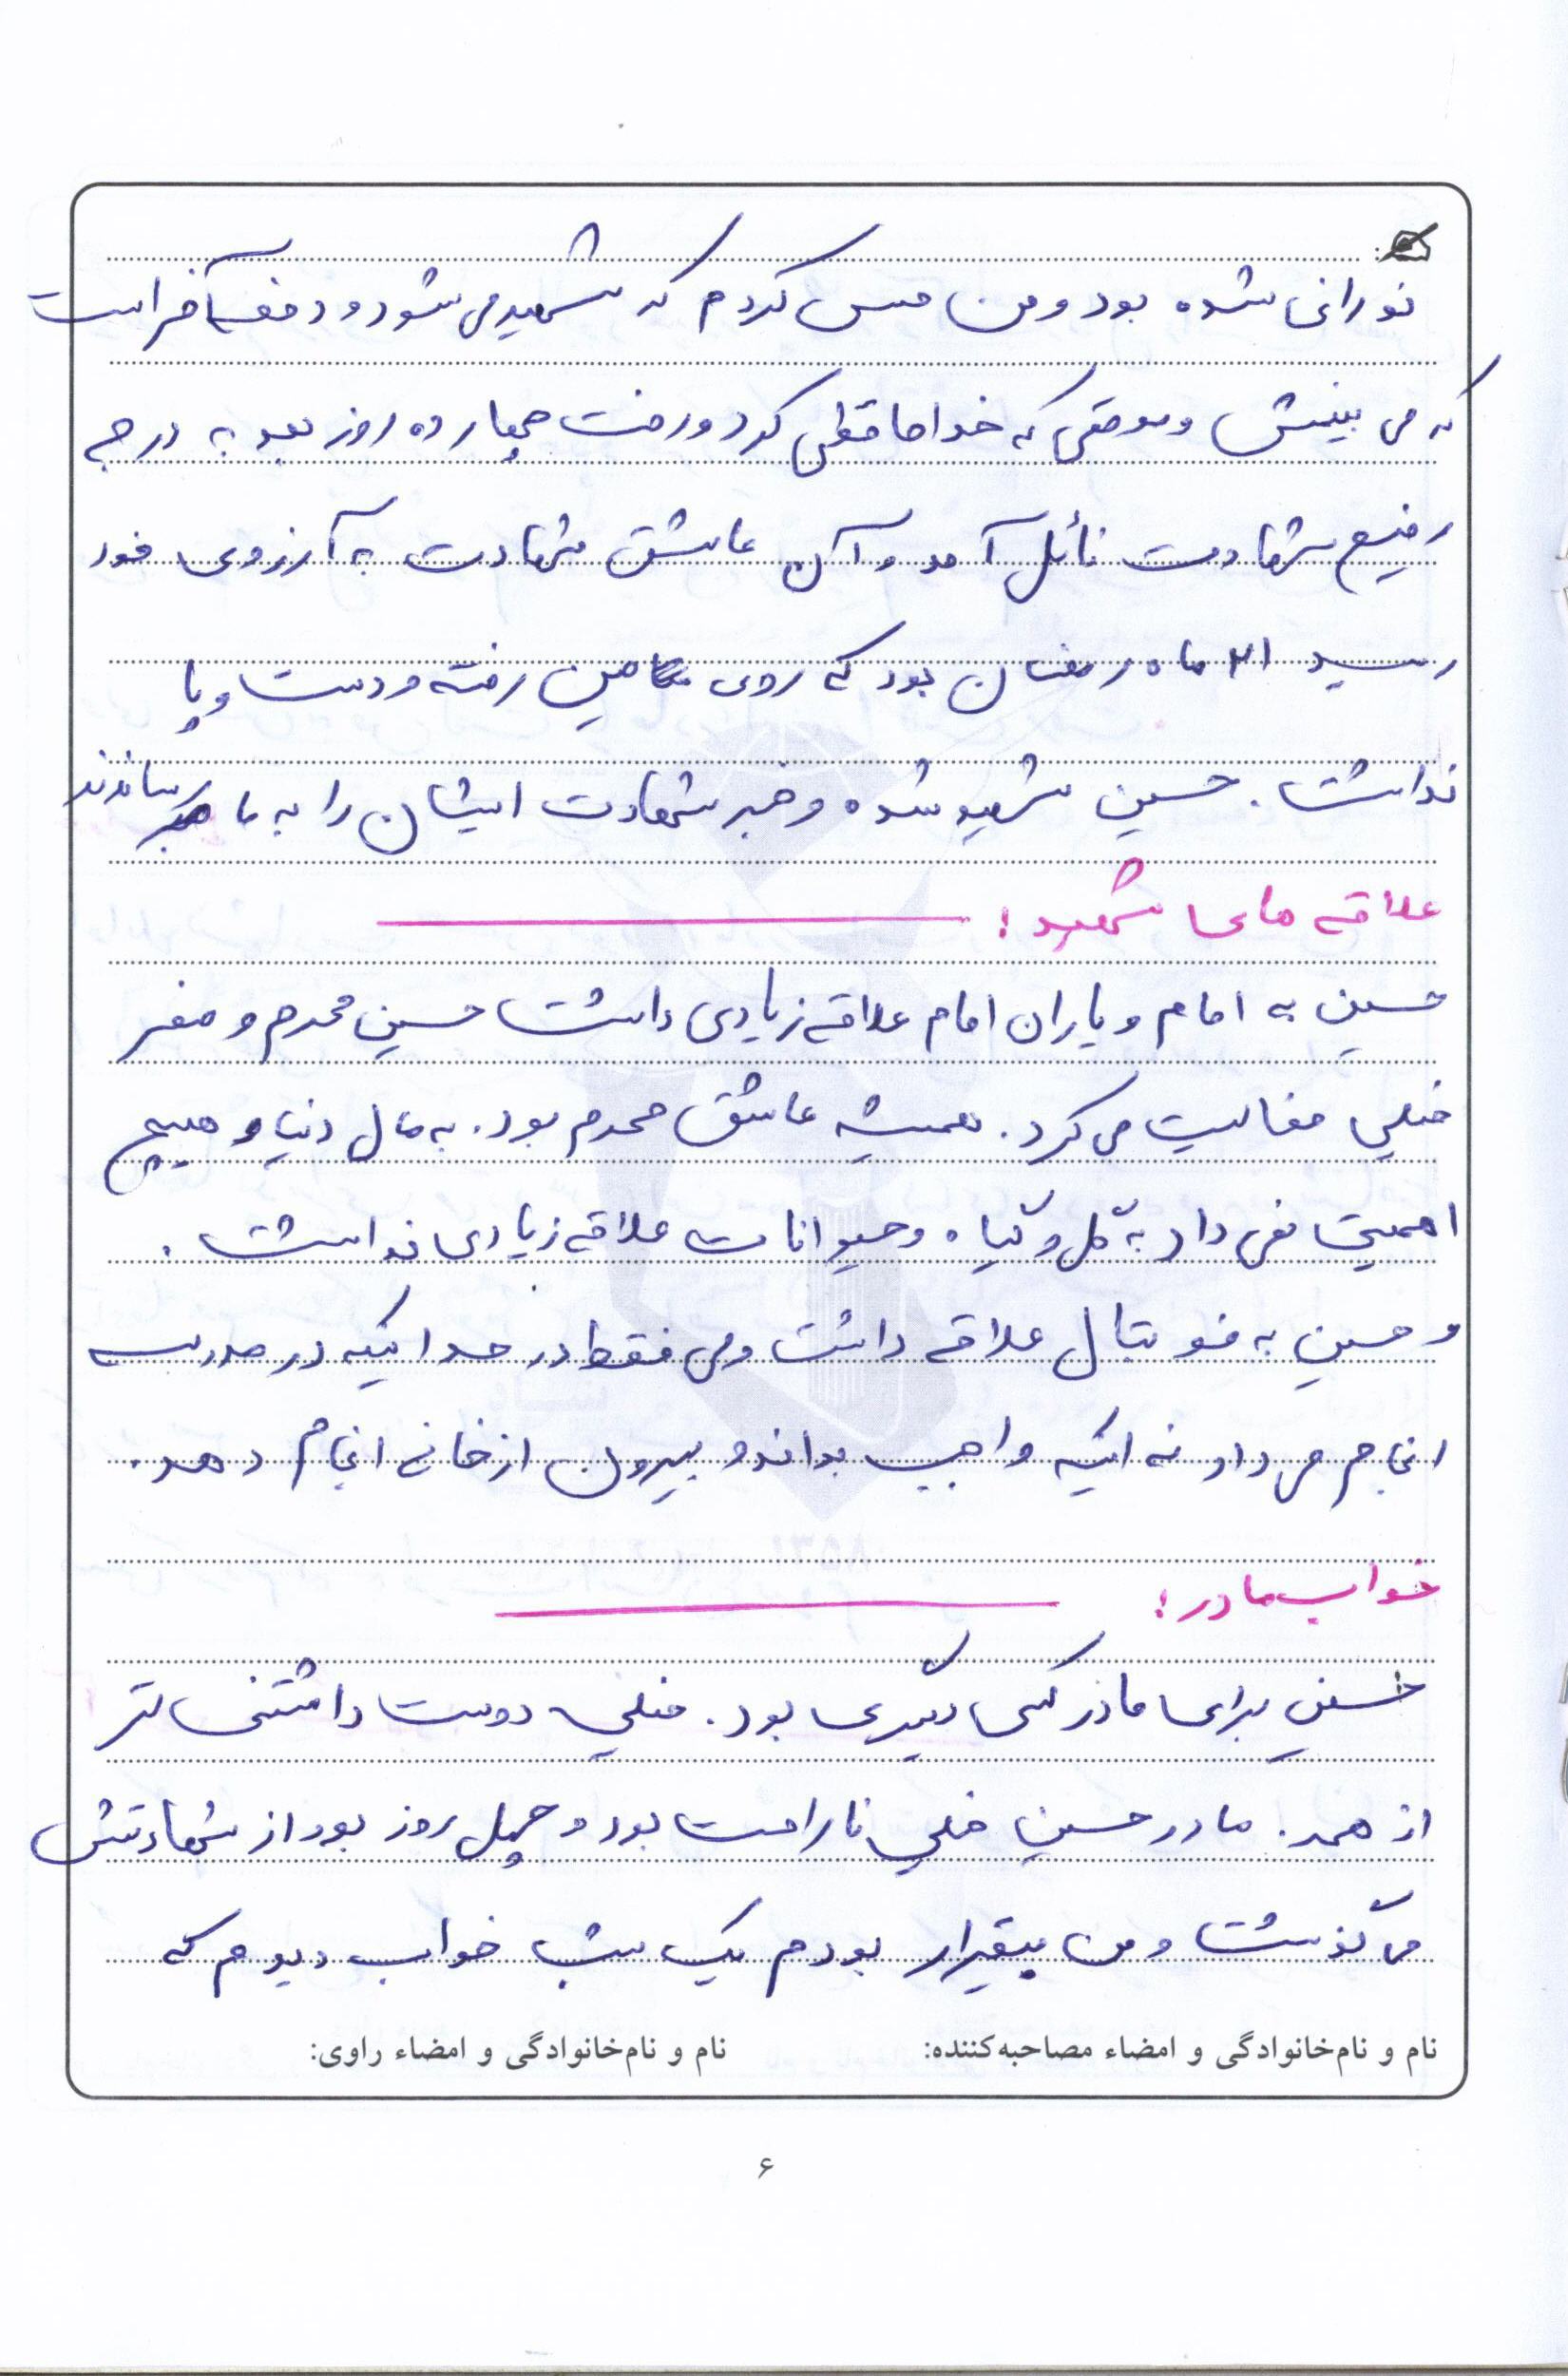 نورانی شده بود و من حس کردم که شهید می شود و دفعه آخر است
که می بینمش و موقعی که خداحافظی کرد و رفت چهارده روز بعد به درجه
رفیع شهادت نائل آمد و آن عاشق شهادت به آرزوی خود
رسید ۲۱ ماه رمضان بود که روی مین رفته و دست و پا
نداشت. حسین شهید شده و خبر شهادت ایشان را به ما رساندند
علاقه های شهید:
حسین به امام و یاران امام علاقه زیادی داشت حسین محرم و صفر
خیلی فعالیت می کرد. همیشه عاشق محرم بود. به مال دنیا و هیچ
اهمیتی نمی داد به گل و گیاه و حیوانات علاقه زیادی نداشت.
و حسین به فوتبال علاقه داشت ولی فقط در حد اینکه در مدرسه
انجام می داد نه اینکه واجب بداند و بیرون از خانه انجام دهد.
خواب مادر:
حسین برای مادر کسی دیگری بود. خیلی دوست داشتنی تر
از همه. مادر حسین خیلی ناراحت بود و چهل روز بود از شهادتش
می گذشت و من بیقرار بودم یک شب خواب دیدم که
نام و نام‌خانوادگی و امضاء مصاحبه‌کننده: نام و نام‌خانوادگی و امضاء راوی:
۶